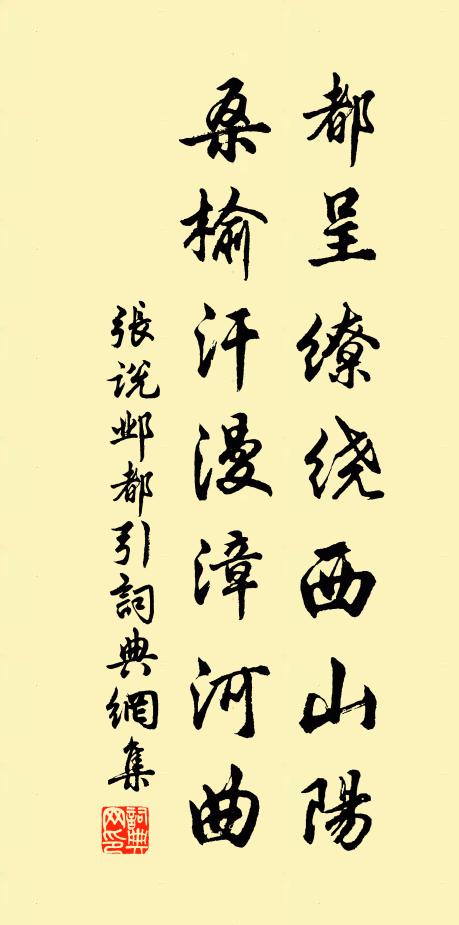 都呈缭绕西山陽
桑榆汗漫漳河曲
張说邺都引詞典網集
詞典網印